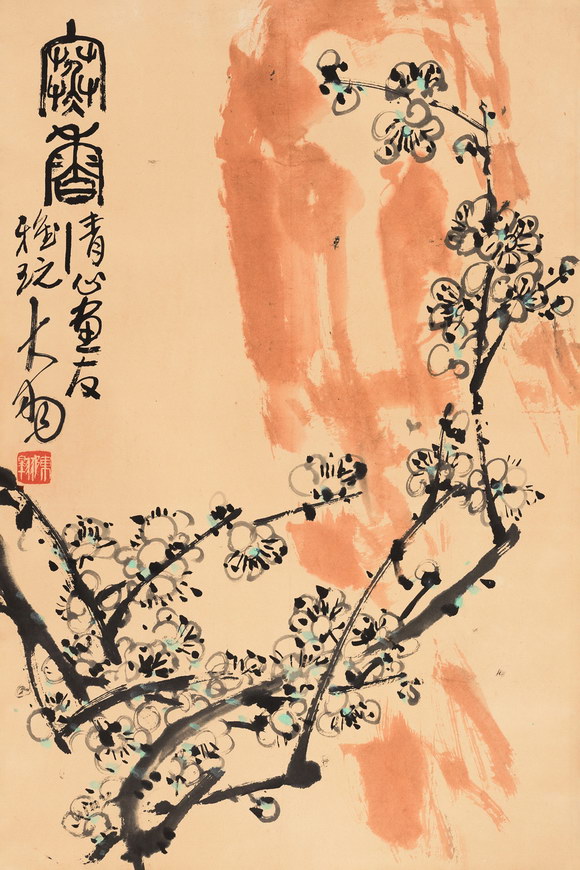 寒香
清心畫友
雅玩大羽